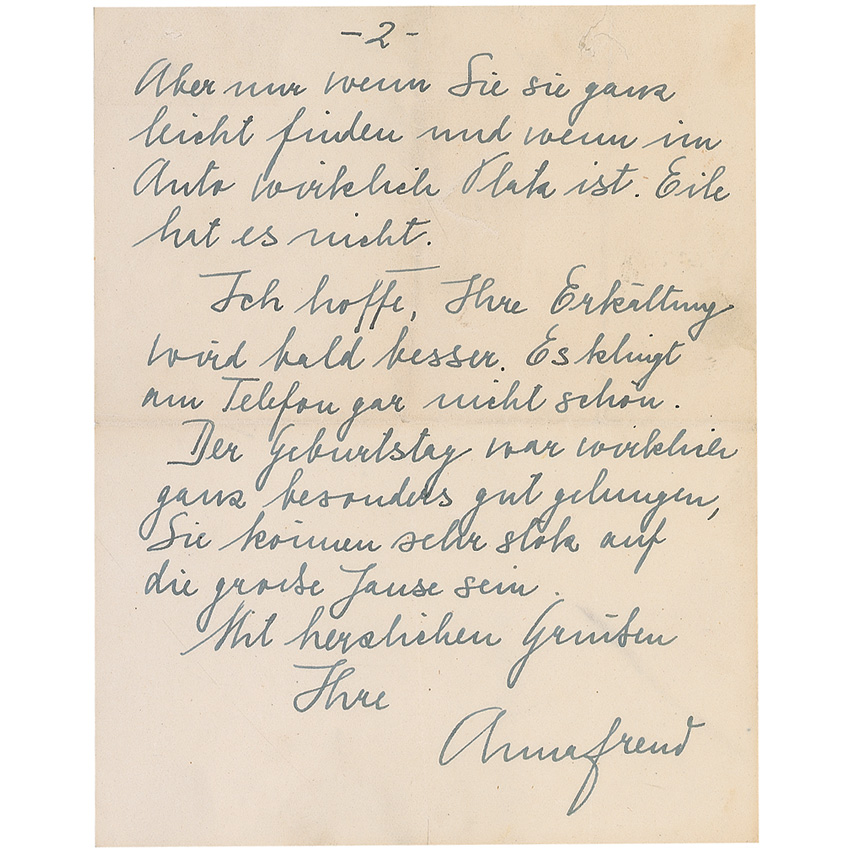 -2-
Aber nur wenn Sie sie ganz
leicht finden und wenn im
Auto wirklich Platz ist. Eile
hat es nicht.
Ich hoffe, Ihre Erkältung
wird bald besser. Es klingt
am Telefon gar nicht schön.
Der Geburtstag war wirklich
ganz besonders gut gelungen,
Sie können sehr stolz auf
die große Jause sein.
Mit herzlichen Grüßen
Ihre
Anna Freud